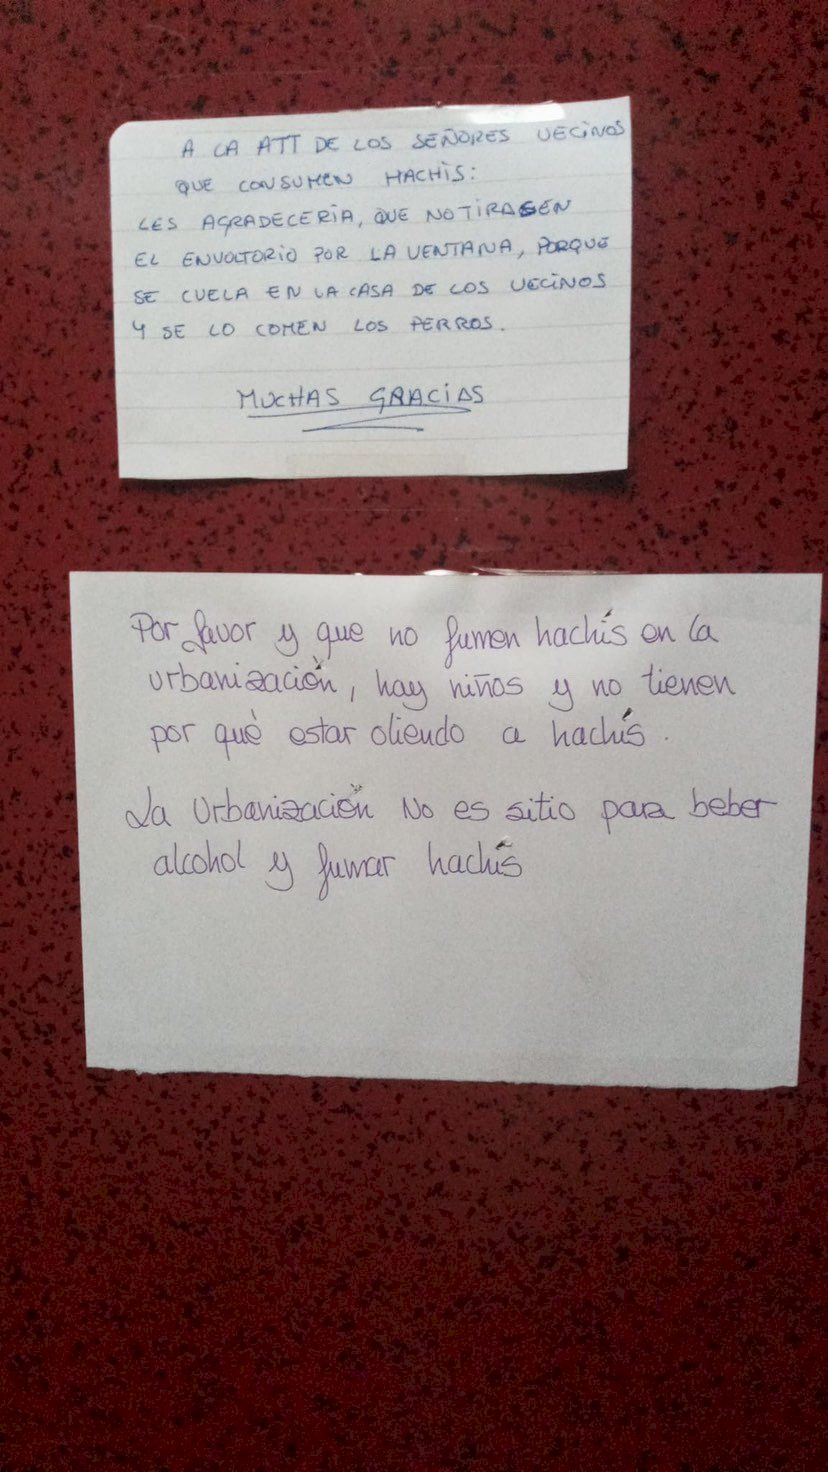 A LA ATT DE LOS SEÑORES VECINOS
QUE CONSUMEN HACHIS:
LES AGRADECERIA, QUE NO TIRASEN
EL ENVOLTORIO POR LA VENTANA, PORQUE
SE CUELA EN LA CASA DE LOS VECINOS
Y SE LO COMEN LOS PERROS.
MUCHAS GRACIAS
Por favor y que no fumen hachís en la
urbanización, hay niños y no tienen
por qué estar oliendo a hachís.
La Urbanización No es sitio para beber
alcohol y fumar hachís